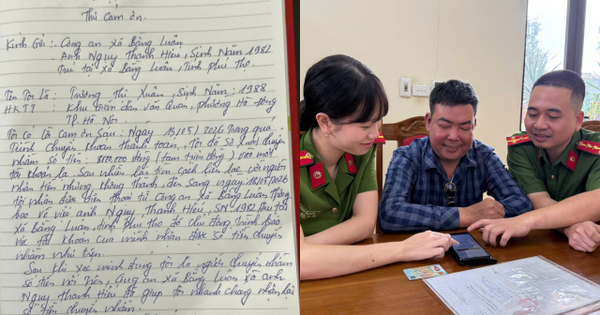 Thư Cam ơn.
Kính Gửi:- Công an xã Bằng Luân
- Anh Nguy Thanh Hiếu, Sinh Năm 1982
Trú tại xã Bằng Luân, Tỉnh Phú Thọ.
Tên Tôi Là: Trương Thị Xuân, Sinh Năm: 1988
HKTT: Khu
Văn Quán, phường Hà Đông
TP. Hà Nội
Tôi Có Lá Cam ơn Sau: Ngày 15/05/2026 Trong quá
Trình chuyển khoản thanh toán, Tôi đã Sơ xuất chuyển
nhầm Số Tiền: (Tám Triệu đồng) vào một
tài khoản lạ. Sau nhiều lần tìm cách liên lạc với người
nhận tiền nhưng không thành, đến sáng ngày
tôi nhận được điện thoại từ Công an xã Bằng Luân Thông
báo về việc anh Nguy Thanh Hiếu, SN 1982 Trú tại
xã Bằng Luân, tỉnh phú Thọ đã chủ động trình báo
Về tài khoản của mình nhận được Số tiền chuyển
nhầm như trên.
Sau khi xác minh đúng tôi là người chuyển nhầm
số tiền nói trên, Công an xã Bằng Luân và anh
Nguy Thanh Hiếu đã giúp tôi nhanh chóng nhận lại
số tiền chuyển nhầm.